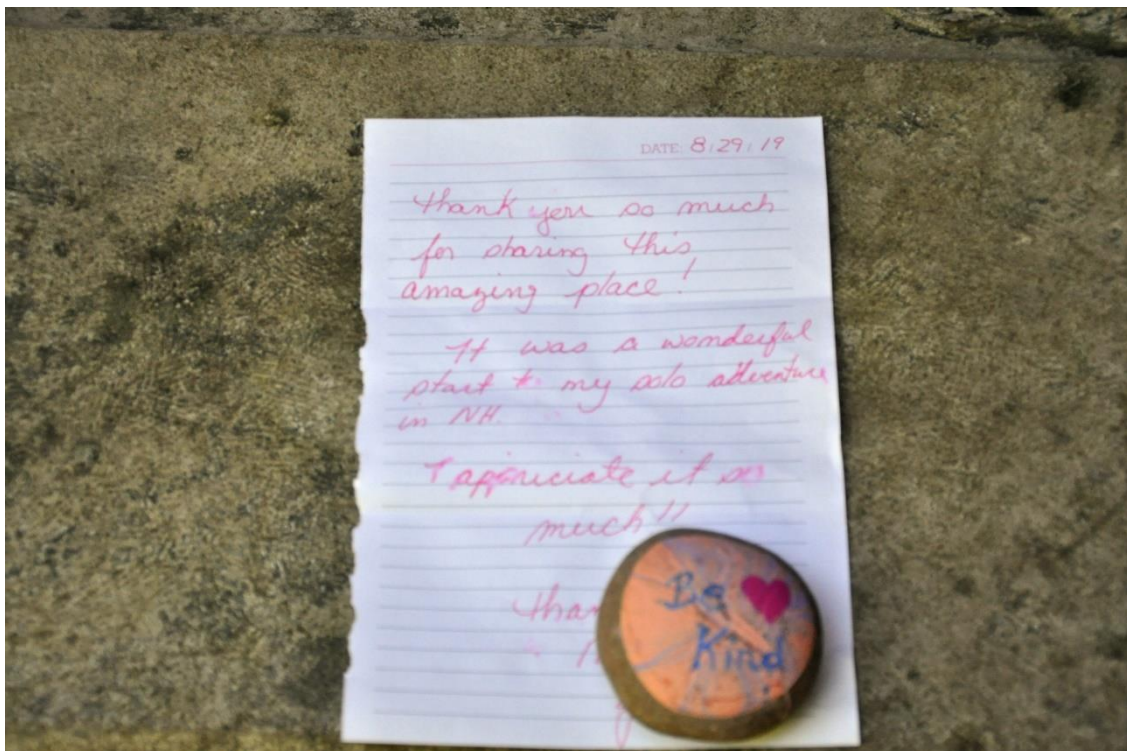 DATE: 8/29/19
thank you so much
for sharing this
amazing place!
It was a wonderful
start to my solo adventure
in NH.
I appriciate it so
much!!
than
Be ♥
Kind